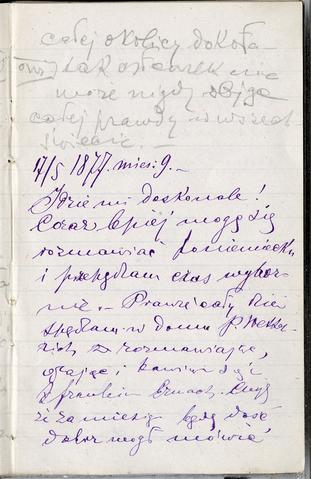 całej okolicy dokoła
tak ułamek nie
może nigdy objąć
całej prawdy wszech
świecie. —
17/5 1877. mies. 9. —
Idzie mi doskonale!
Coraz lepiej mogę się
rozmawiać poniemiecku
i przepędzam czas wybor
nie. — Prawie cały dzień
spędzam w domu P.
rozmawiając,
grając i bawiąc się
z fräulein
że za miesiąc będę dość
dobrze mógł mówić